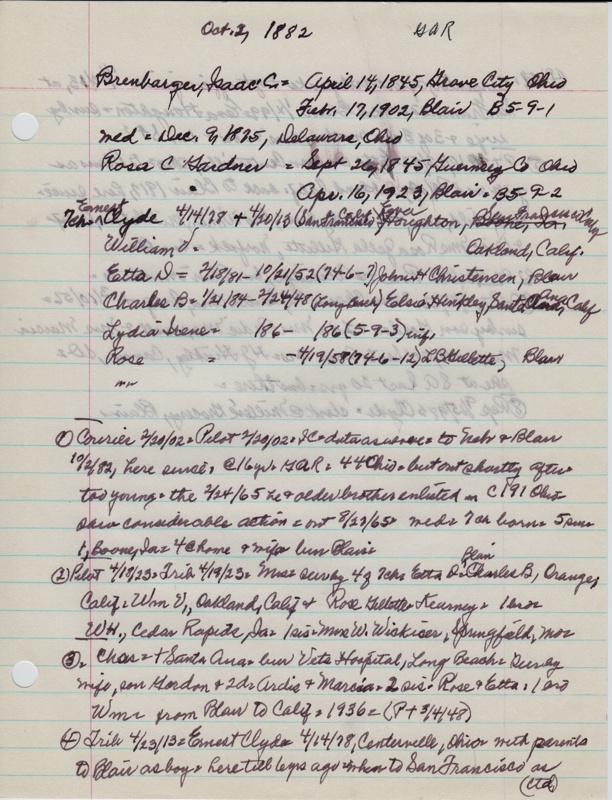 Oct. 2, 1882 GAR
Brenbarger, Isaac C. = April 14, 1845, Grove City Ohio
Febr. 17, 1902, Blair B 5-9-1
med = Dec. 9, 1875, Delaware, Ohio
Rosa C Gardner = Sept 26, 1845, Guernsey Co Ohio
Apr. 16, 1923, Blair = B5-9-2
7ch = Ernest Clyde 4/14/78 + 4/20/13 (San Francisco) Houghton,
William V. Oakland, Calif.
Etta D = 2/18/81 - 10/21/52 (74-6-7) John H Christensen, Blair
Charles B = 1/21/84 - 2/24/48 (Long Beach) Elsie Hinkley, Santa Ana, Calif
Lydia Irene = 186- 186 (5-9-3) inf.
Rose = - 4/19/58 (74-6-12) L B Gillette, Blair
① Courier 2/20/02 = Pilot 2/20/02 = IC = data as above = to Nebr & Blair
10/2/82, here since, @ 16 yr = GAR = 44 Ohio = but out shortly after
too young = the 2/24/65 he & older brother enlisted in C 191 Ohio
saw considerable action = out 8/27/65 med = 7 ch born = 5 surv
1, Boone, Ia = 4 @ home & wife bur Blair =
② Pilot 4/18/23 = Trib 4/19/23 = Mrs = survby 4 of 7ch = Etta D = Blair Charles B, Orange,
Calif = Wm V, Oakland, Calif & Rose Gillette = Kearney = 1 bro
WH, Cedar Rapids, Ia = 1 sis = Mrs W. Wiskiser, Springfield, Mo =
③ = Chas = + Santa Ana = bur Vets Hospital, Long Beach = survby
wife, son Gordon & 2d = Ardis & Marcia = 2 sis = Rose & Etta = 1 bro
Wm = from Blair to Calif = 1936 = (P + 3/4/48)
④ Trib 4/23/13 = Ernest Clyde = 4/14/78, Centerville, Ohio = with parents
to Blair as boy = here till 6 yrs ago = when to San Francisco as
(ctd)